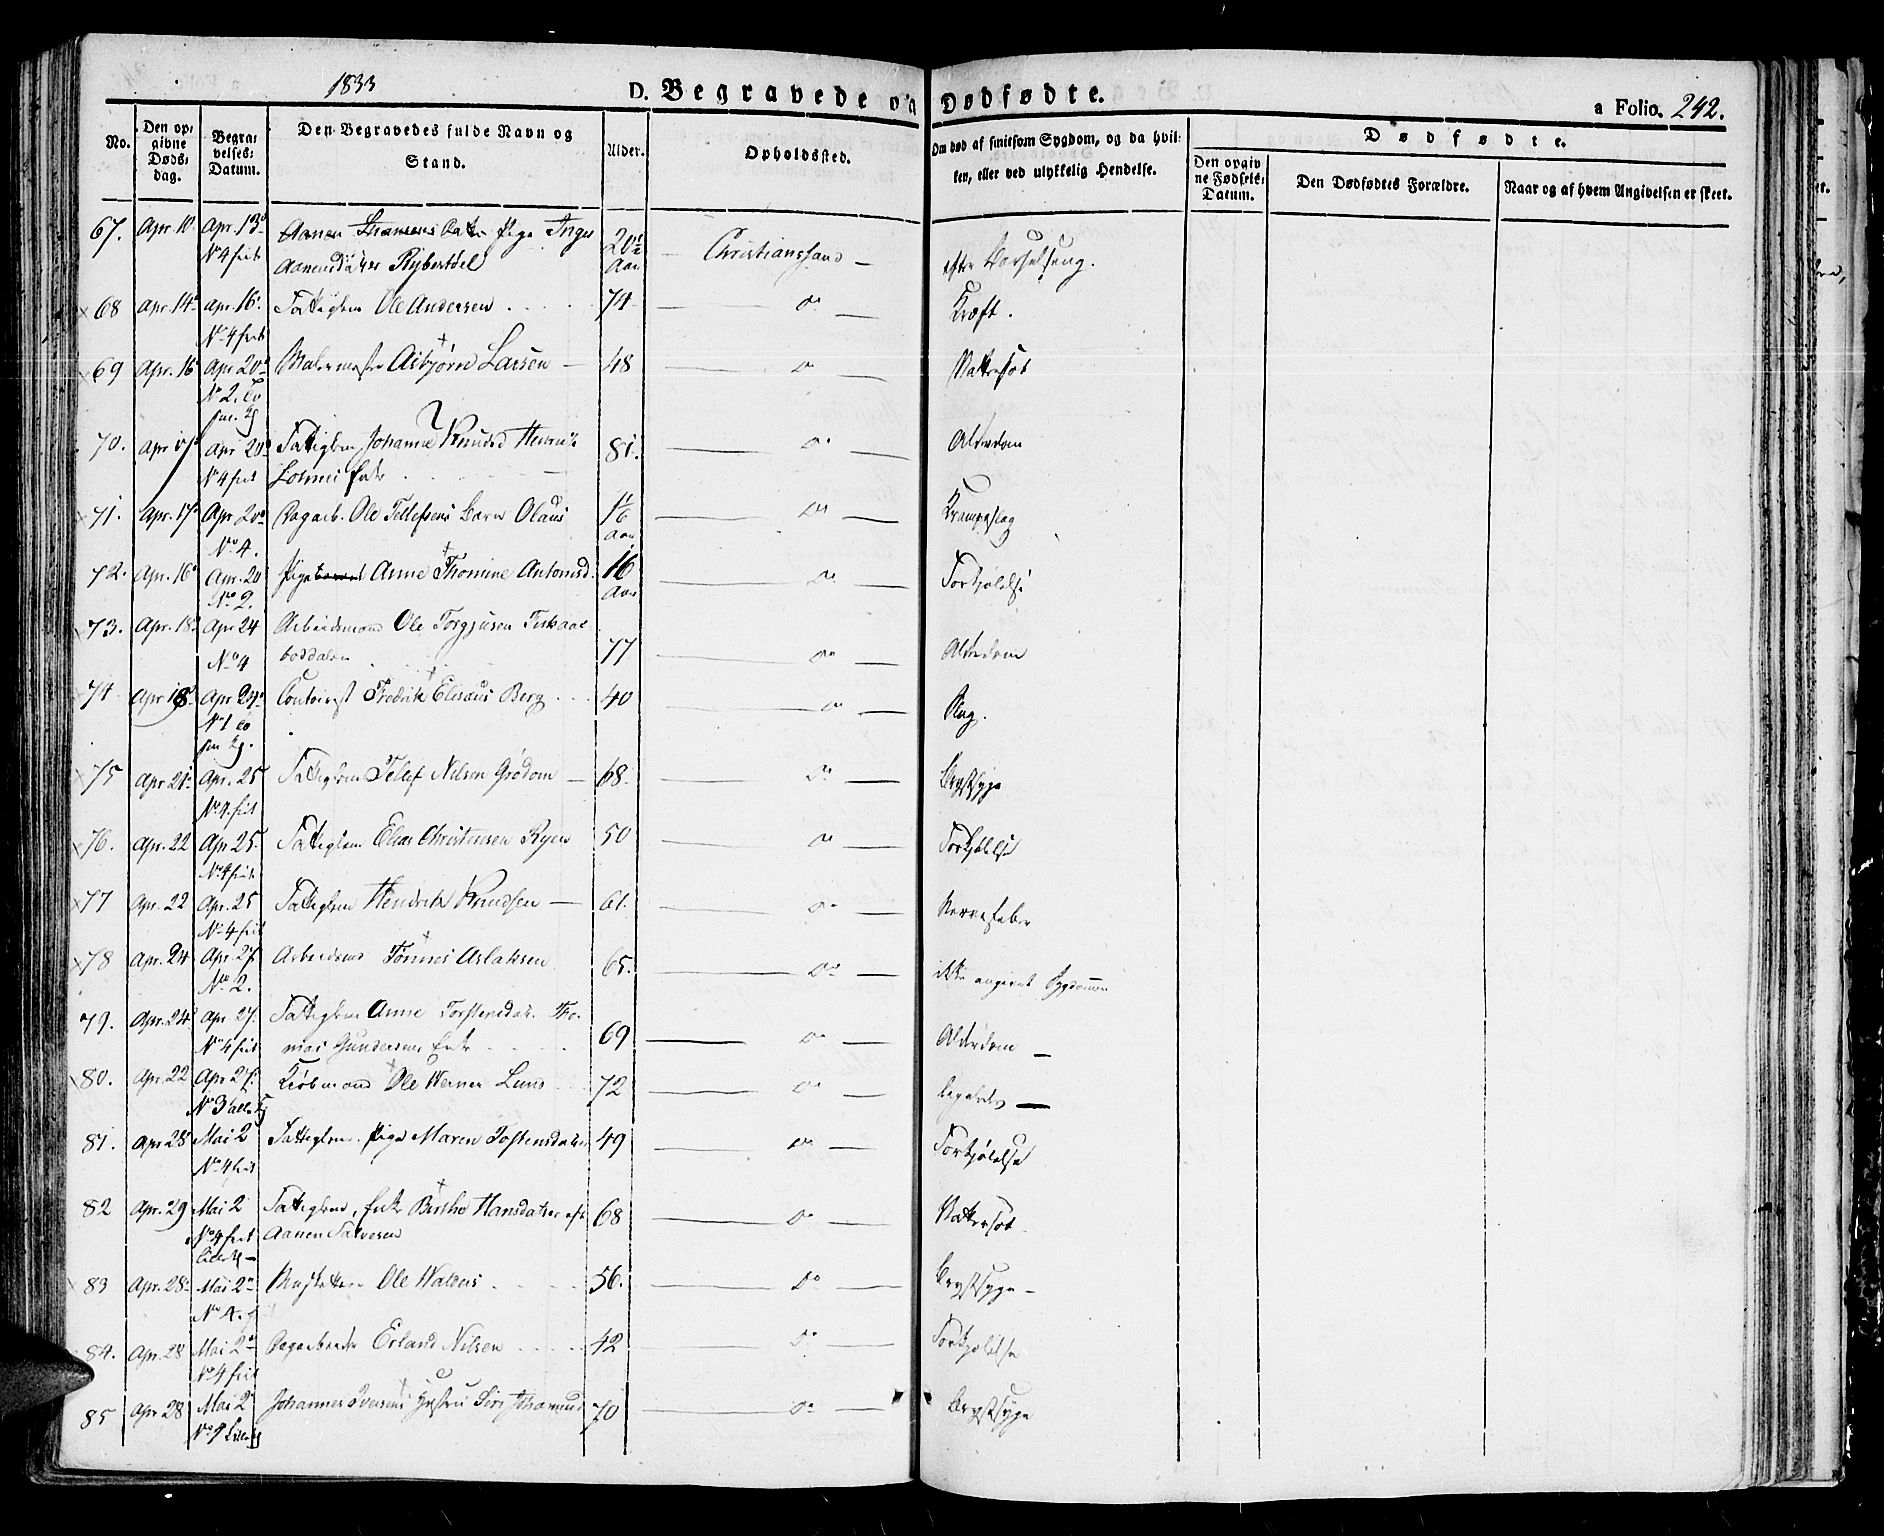 1833
D. Begravede og Dødfødte.
a Folio. 242.
No.
Den op-
givne
Døds-
dag.
Begra-
velses-
Datum.
Den Begravedes fulde Navn og
Stand.
Alder.
Opholdssted.
Om død af smitsom Sygdom, og da hvil-
ken, eller ved ulykkelig Hendelse.
Dødfødte.
Den opgiv
ne Fødsels-
Datum.
Den Dødfødtes Forældre.
Naar og af hvem Angivelsen er skeet.
67. Apr. 10. Apr. 13 Pige Inger 20½ Christianssand efter Barselseng.
No 4 frit Aanensdatter Rybertdel Aar
68 Apr. 14 Apr. 16 Fattiglem Ole Andersen 74 do Kræft.
No 4 frit
69 Apr. 16 Apr 20 Malermester Asbjørn Larsen 48 do Vattersot
No 2.
70. Apr 17 Apr 20 Fattiglem Johanne Knudsd Henric 81. do Alderdom
No 4 frit Enke
71. Apr. 17 Apr 20 Dagarb. Ole Tellefsens Barn Olaus 1/6 do Krampeslag
No 4. Aar
72. Apr. 16 Apr. 20 Pige Anne Thomine Antonisd. 16 do Forkjølelse
No 2. Aar
73. Apr. 18 Apr 24 Arbeidsmand Ole Torgjusen 77 do Alderdom
No 4
74. Apr 18 Apr 24 Contorist Fredrik Elisæus Berg 40 do Slag.
No 1
75 Apr 21 Apr. 25 Fattiglem Tellef Nilsen Grødom 68. do Brystsyge
No 4. frit
76. Apr. 22 Apr 25. Fattiglem Elias Christensen Ryen 50 do Forkjølelse
No 4 frit
77 Apr. 22 Apr. 25 Fattiglem Hendrik Knudsen 61. do Nervefeber
No 4 frit
78 Apr. 24 Apr. 27 Arbeidsmd Tønnes Aslaksen 65. do ikke angivet Sygdommen
No 2.
79. Apr. 24 Apr 27. Fattiglem Anne Torstensdatr. Tho-
No 4 frit mas Gundersens Enke 69 do Alderdom
80. Apr. 22 Apr 27. Kiøbmand Ole Werner Lund 72 do
No 3
81. Apr 28 Mai 2 Fattiglem. Pige Maren Tostensdatter 49 do Forkjølelse
No 4 frit
82 Apr. 29 Mai 2 Fattiglem, Enke Berthe Hansdatter eft. 68 do Vattersot
No 4 frit Aanen Salvesen
83 Apr. 28 Mai 2 Ole 56. do Brystsyge
No 4.
84. Apr. 28 Mai 2 Dagarbeider Erland Nilsen 42 do Forkjølelse
No 4 frit
85 Apr 28 Mai 2 Johannes Iversens Hustru Siri 70 do Brystsyge
No